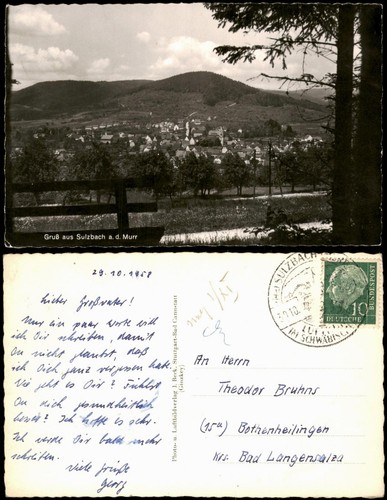 Gruß aus Sulzbach a. d. Murr
29.10.1958
Lieber Großvater!
Nur ein paar Worte will
ich Dir schreiben, damit
Du nicht glaubst, daß
ich Dich ganz vergessen habe.
Wie geht es Dir? Fühlst
Du dich gesundheitlich
besser? Ich hoffe es sehr.
Ich werde Dir bald mehr
schreiben.
Viele Grüße
Georg
Photo- u. Luftbildverlag J. Beck, Stuttgart-Bad Cannstatt
SULZBACH
IM SCHWÄBISCHEN
10
DEUTSCHE
BUNDESPOST
An Herrn
Theodor Bruhns
(15a) Bothenheilingen
Krs. Bad Langensalza